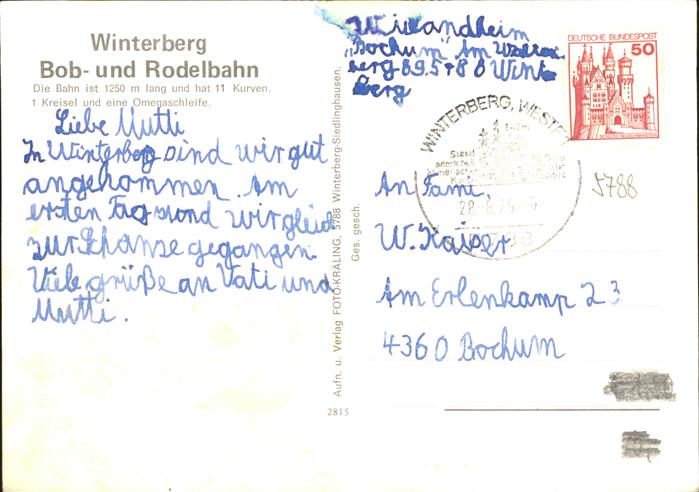 Winterberg
Bob- und Rodelbahn
Die Bahn ist 1250 m lang und hat 11 Kurven,
1 Kreisel und eine Omegaschleife.
Liebe Mutti
In Winterberg sind wir gut
angekommen. Am
ersten Tag sind wir gleich
zur Schanze gegangen.
Viele grüße an Vati und
Mutti.
Aufn. u. Verlag FOTO-KRÄLING, 5788 Winterberg-Siedlinghausen,
Ges. gesch.
2815
"Bochum" Am
berg 69. 5788 Wint
berg
DEUTSCHE BUNDESPOST
50
WINTERBERG, WESTF
5788
An Fami.
W. Kaiser
Am Erlenkamp 23
4360 Bochum